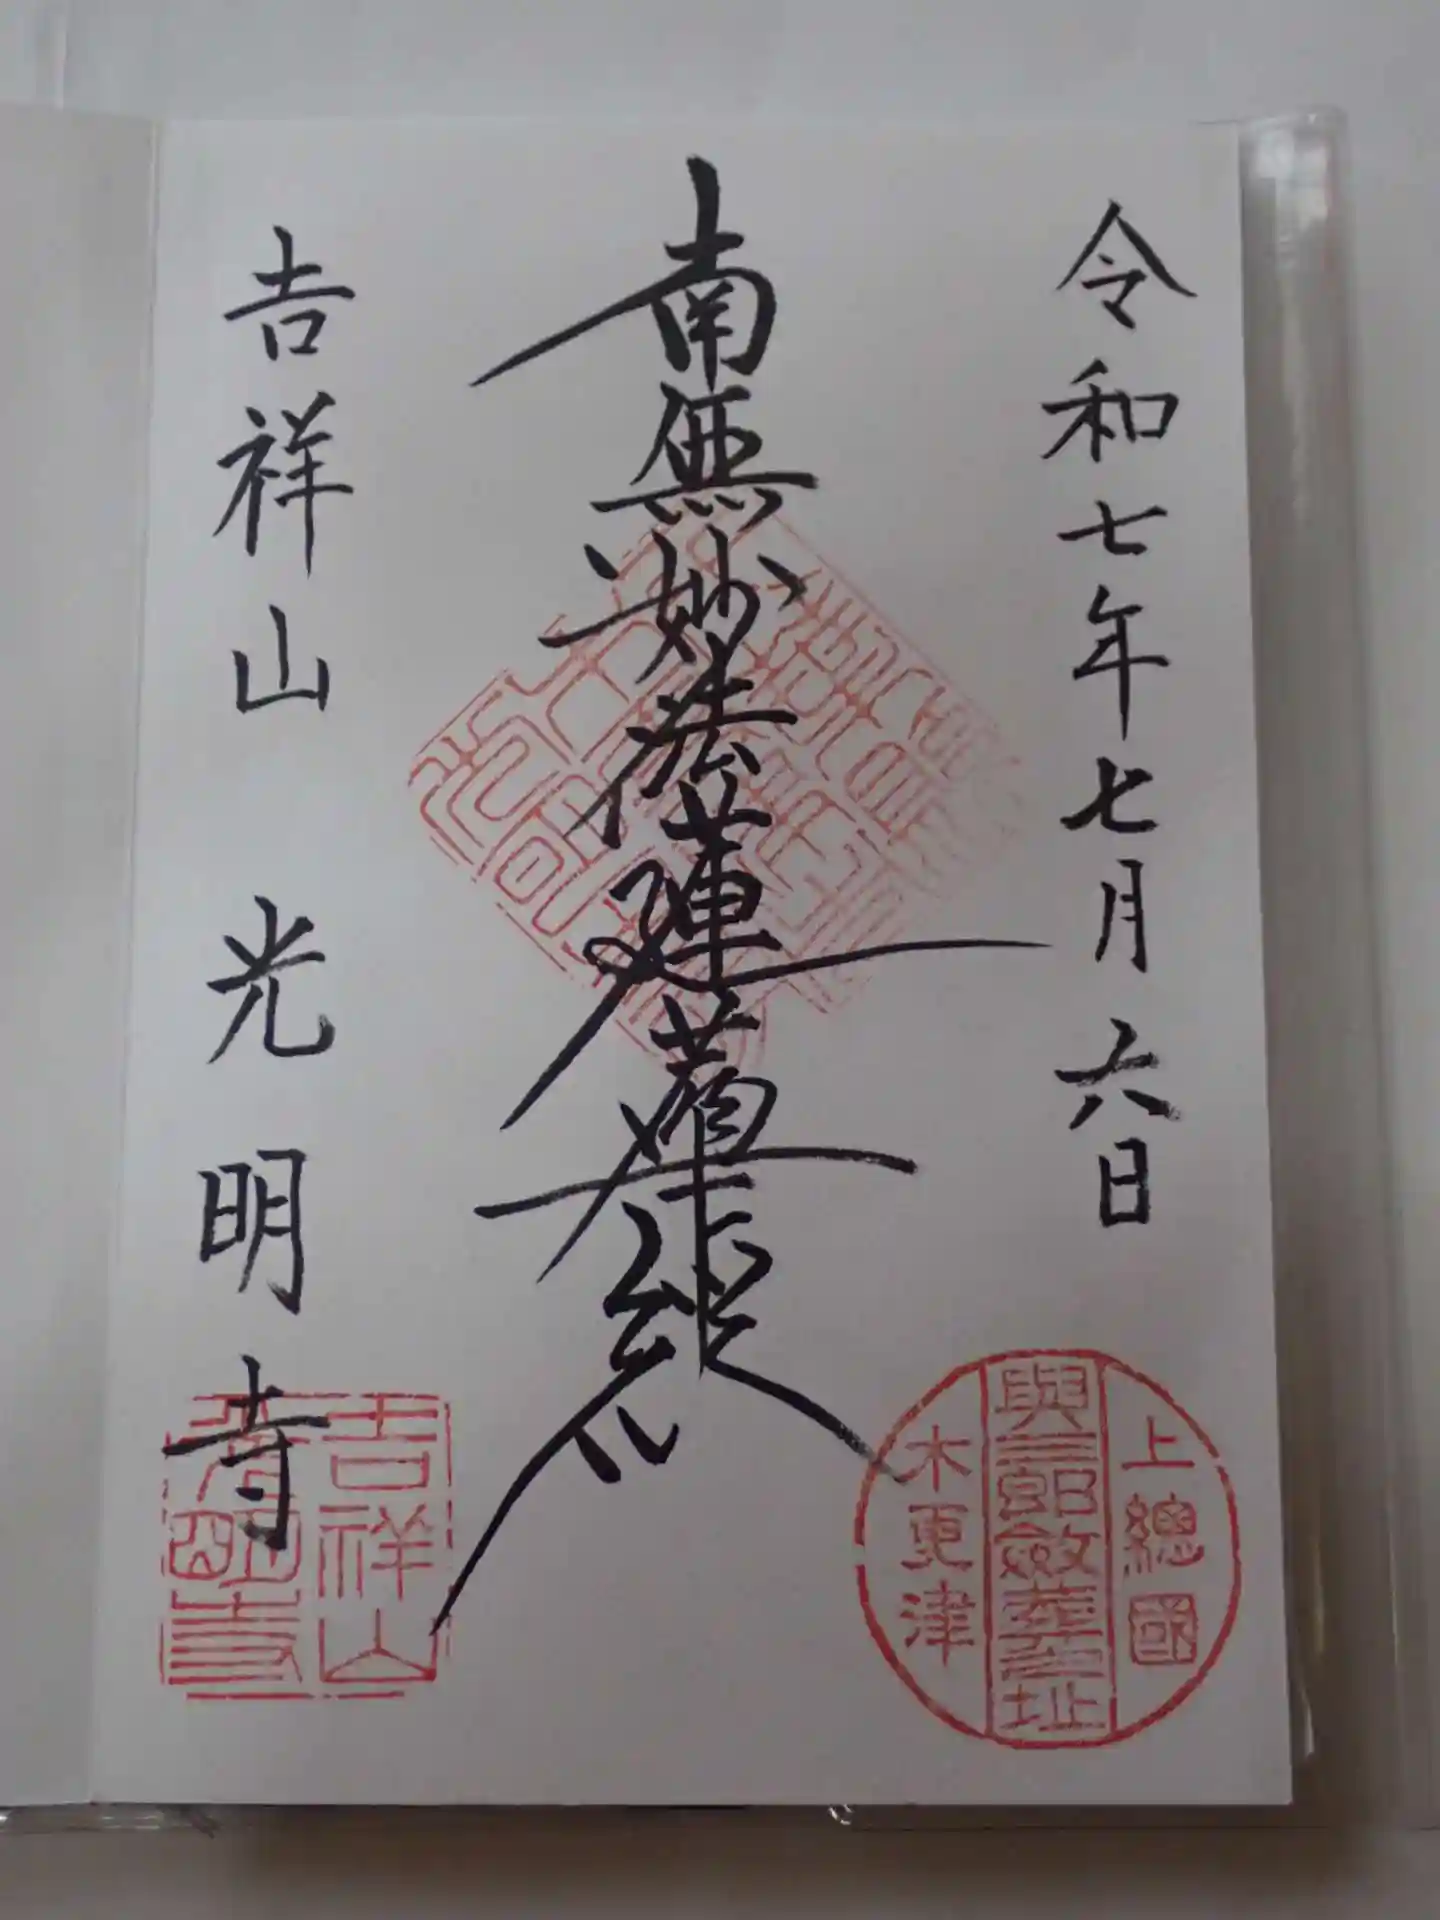 令和七年七月六日
南無妙法蓮華経
吉祥山 光明寺
上總國
木更津
吉祥山
光明寺